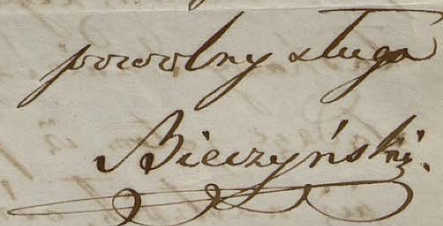 powolny sługa
Bieczyński.